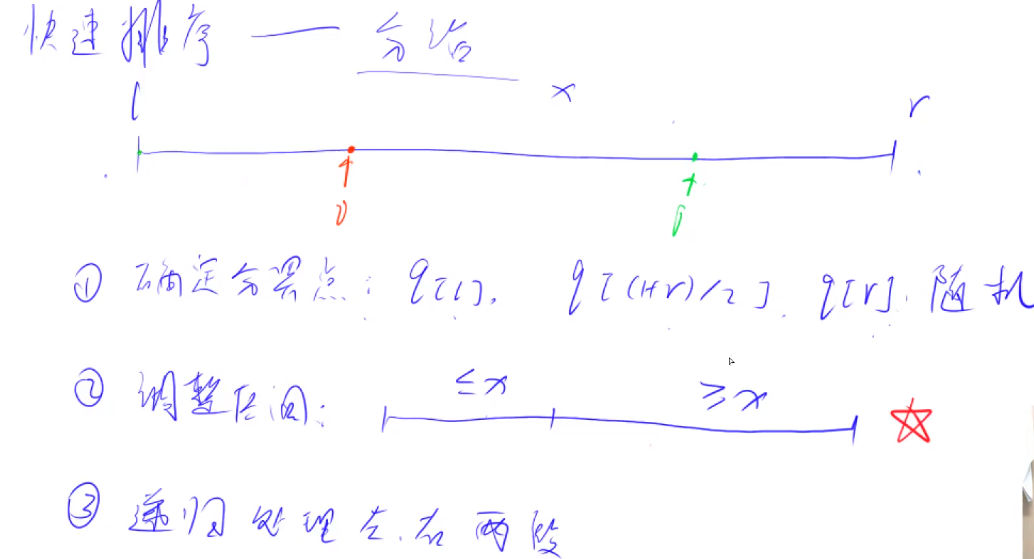 快速排序 —— 分治
x
l r
① 确定分界点：q[l], q[(l+r)/2], q[r], 随机
② 调整区间： ≤x ≥x
③ 递归处理左、右两段